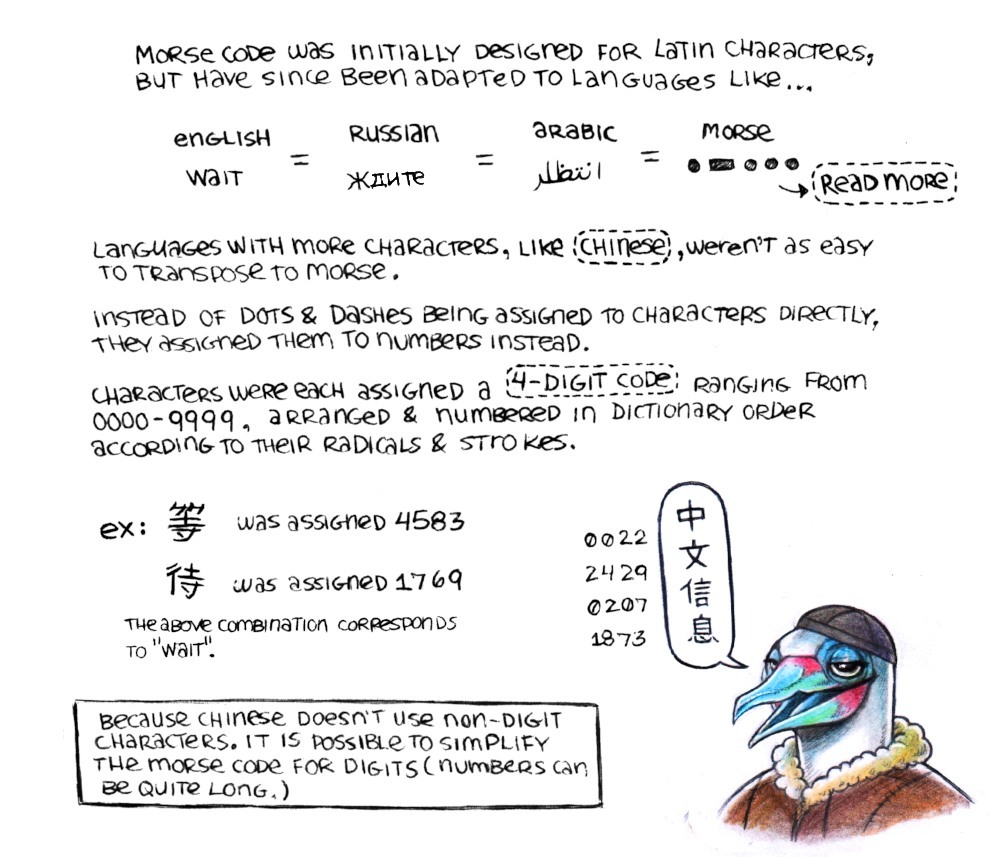 MORSE CODE WAS INITIALLY DESIGNED FOR LATIN CHARACTERS,
BUT HAVE SINCE BEEN ADAPTED TO LANGUAGES LIKE...
ENGLISH RUSSIAN ARABIC MORSE
WAIT = ЖДИТЕ = انتظلر = •-•••
READ MORE
LANGUAGES WITH MORE CHARACTERS, LIKE CHINESE, WEREN'T AS EASY
TO TRANSPOSE TO MORSE.
INSTEAD OF DOTS & DASHES BEING ASSIGNED TO CHARACTERS DIRECTLY,
THEY ASSIGNED THEM TO NUMBERS INSTEAD.
CHARACTERS WERE EACH ASSIGNED A 4-DIGIT CODE RANGING FROM
0000-9999, ARRANGED & NUMBERED IN DICTIONARY ORDER
ACCORDING TO THEIR RADICALS & STROKES.
EX: 等 WAS ASSIGNED 4583
待 WAS ASSIGNED 1769
THE ABOVE COMBINATION CORRESPONDS
TO "WAIT".
0022 中
2429 文
0207 信
1873 息
BECAUSE CHINESE DOESN'T USE NON-DIGIT
CHARACTERS. IT IS POSSIBLE TO SIMPLIFY
THE MORSE CODE FOR DIGITS (NUMBERS CAN
BE QUITE LONG.)